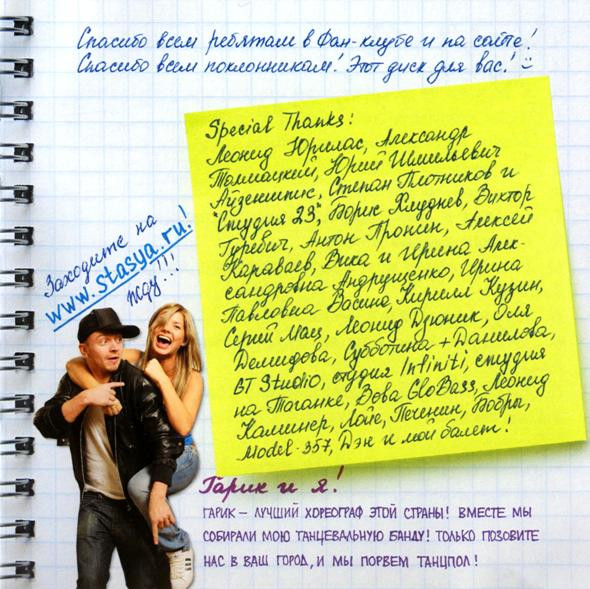 Спасибо всем ребятам в Фан-клубе и на сайте!
Спасибо всем поклонникам! Этот диск для вас! :)
Special Thanks:
Леонид Юрилас, Александр
Толмацкий, Юрий Шмильевич
Айзеншпис, Степан Плотников и
"Студия 23", Борис Хлуднев, Виктор
Гуревич, Антон Пронин, Алексей
Караваев, Вика и Ирина Алек-
сандровна Андрущенко, Ирина
Павловна Васина, Кирилл Кузин,
Сергий Мац, Леонид Дзюник, Оля
Демидова, Субботина + Данилова,
GT Studio, студия Infiniti, студия
на Таганке, Вова GloBass, Леонид
Каминер, Лойс, Печенин, Бобры,
Model-357, Дэн и мой балет!
Заходите на
www.stasya.ru!
жду!!!
Гарик и я!
ГАРИК – ЛУЧШИЙ ХОРЕОГРАФ ЭТОЙ СТРАНЫ! ВМЕСТЕ МЫ
СОБИРАЛИ МОЮ ТАНЦЕВАЛЬНУЮ БАНДУ! ТОЛЬКО ПОЗОВИТЕ
НАС В ВАШ ГОРОД, И МЫ ПОРВЕМ ТАНЦПОЛ!